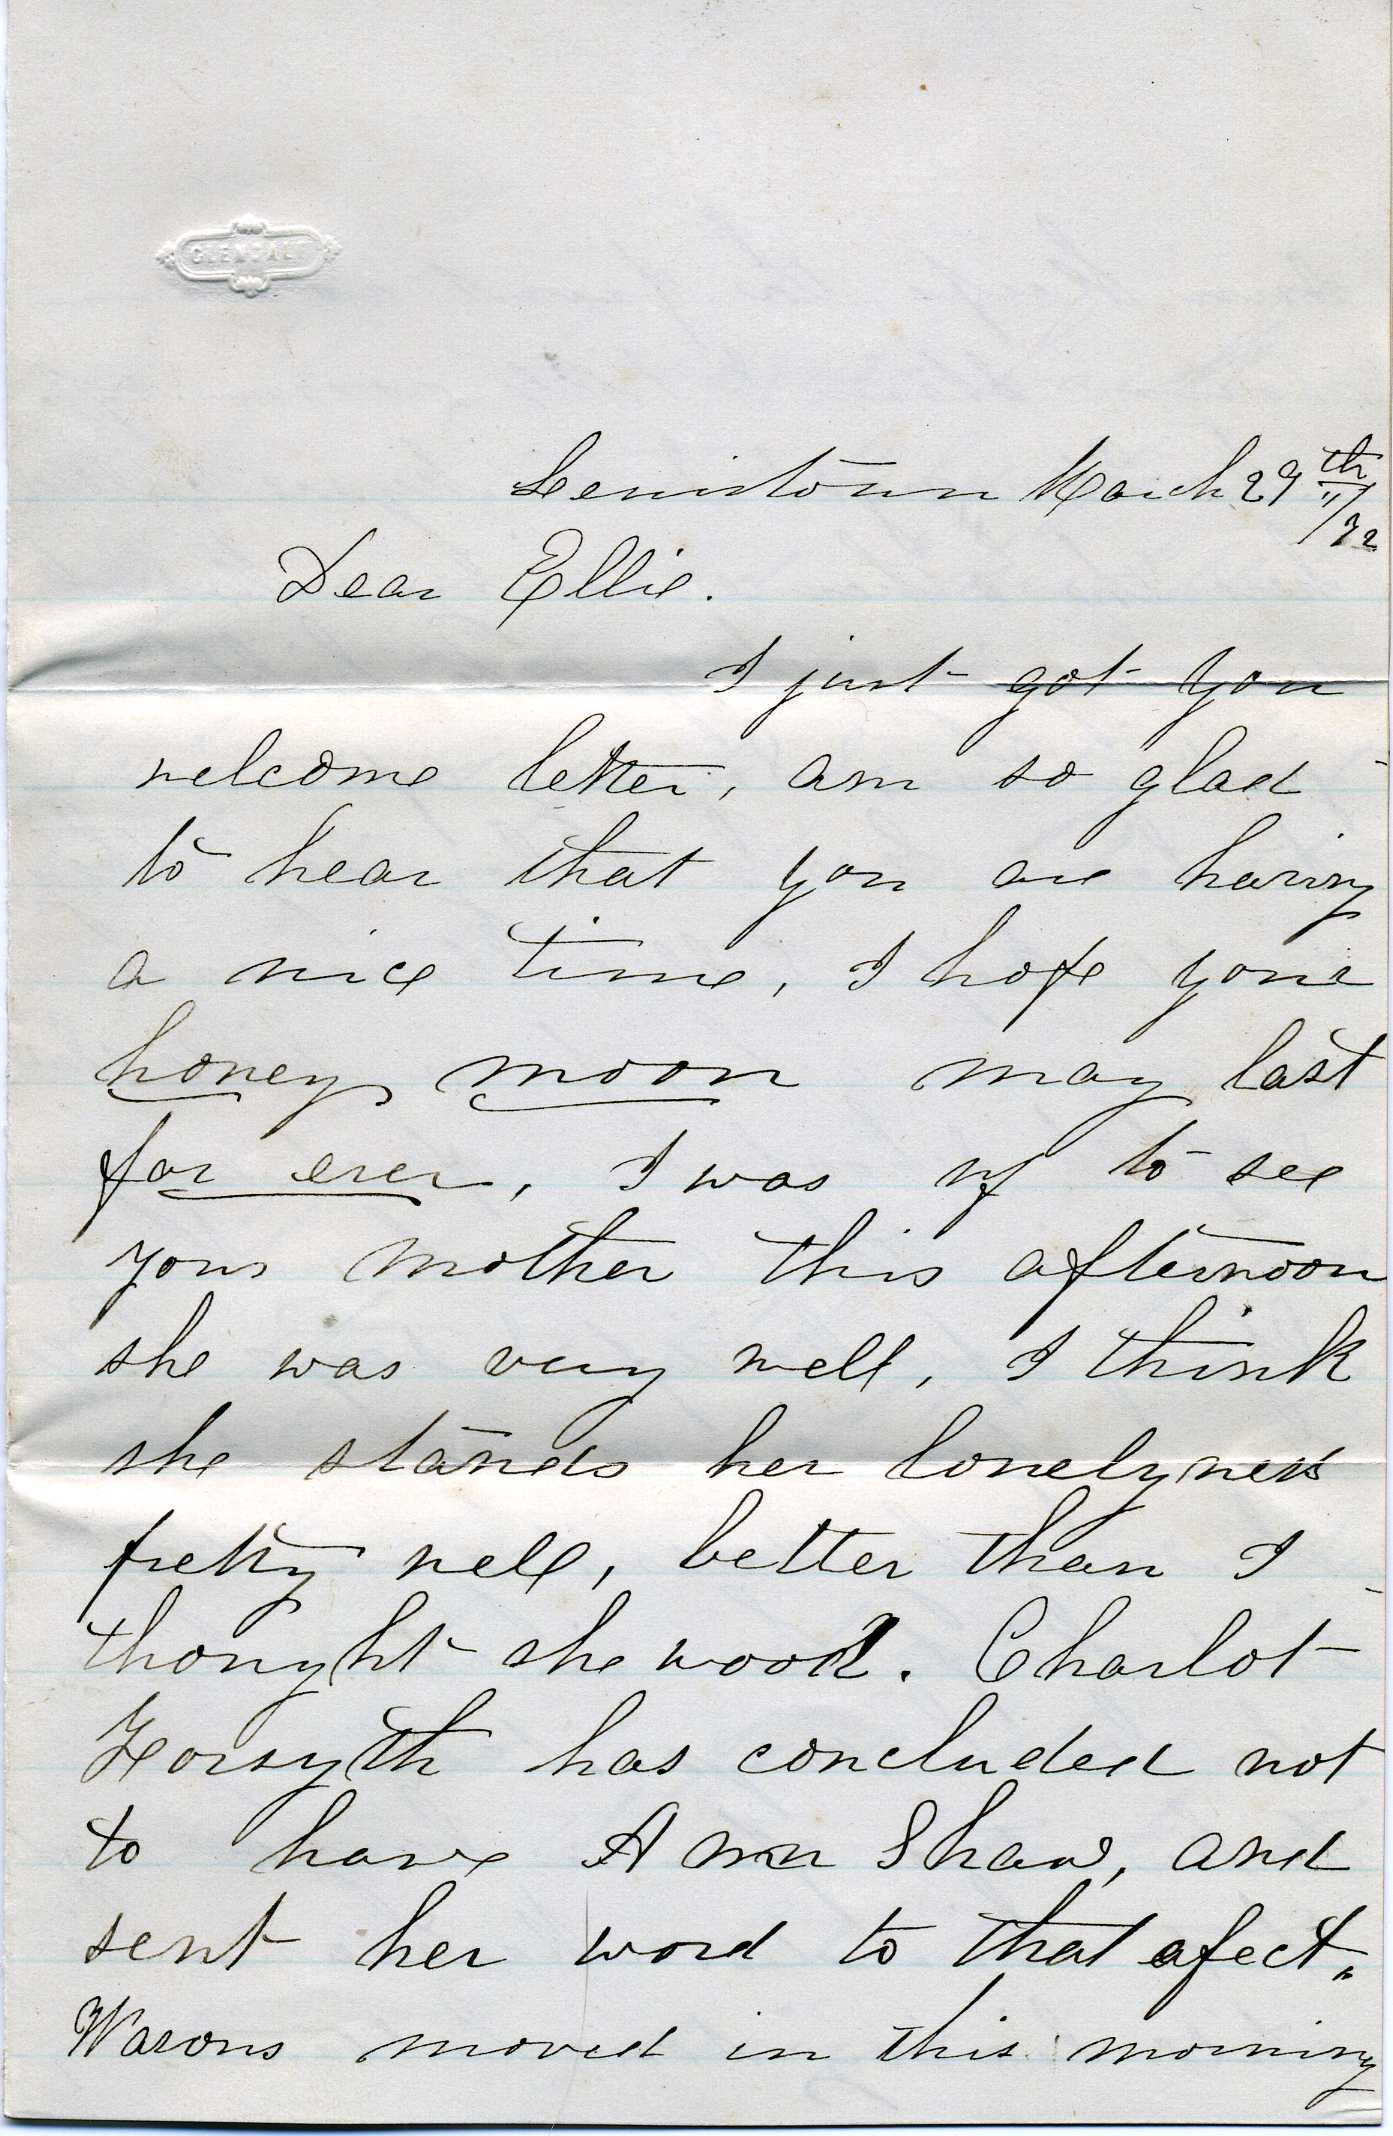 GLENDALE
Lewistown March 29th/72
Dear Ellie.
I just got you
welcome letter, am so glad
to hear that you are having
a nice time, I hope your
honey moon may last
for ever, I was up to see
your mother this afternoon
she was very well, I think
she stands her lonelyness
pretty well, better than I
thought she wood. Charlot
Forsyth has concluded not
to have Ann Shaw, and
sent her word to that afect.
moved in this morning